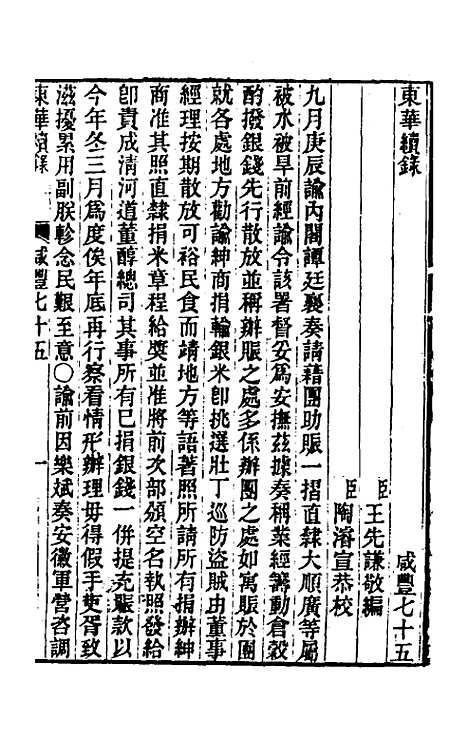 東華續錄 咸豐七十五
臣王先謙敬編
臣陶濬宣恭校
九月庚辰諭內閣譚廷襄奏請藉團助賑一摺直隸大順廣等屬
被水被旱前經諭令該署督妥爲安撫茲據奏稱業經籌動倉穀
酌撥銀錢先行散放並稱辦賑之處多係辦團之處如寓賑於團
就各處地方勸諭紳商捐輸銀米卽挑選壯丁巡防盜賊由董事
經理按期散放可裕民食而靖地方等語著照所請所有捐辦紳
商准其照直隸捐米章程給獎並准將前次部頒空名執照發給
卽責成清河道董醇總司其事所有已捐銀錢一併提充賑款以
今年冬三月爲度俟年底再行察看情形辦理毋得假手吏胥致
滋擾累用副朕軫念民艱至意○諭前因樂斌奏安徽軍營咨調
東華續錄 咸豐七十五 一